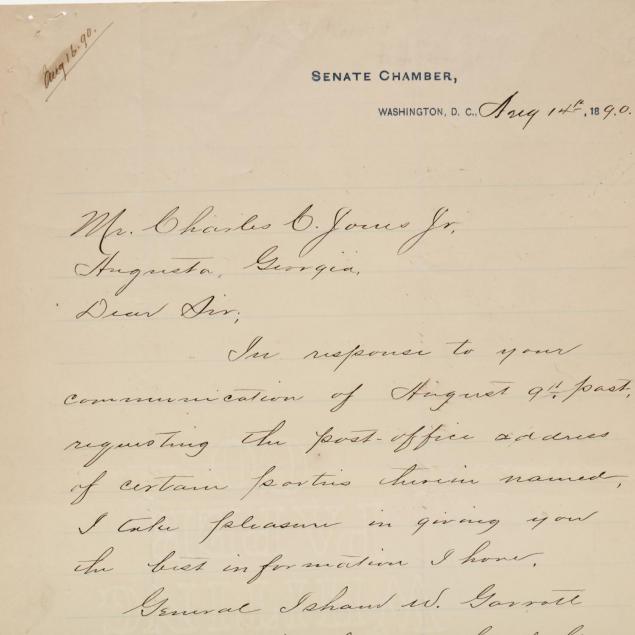 Aug 16. 90.
SENATE CHAMBER,
WASHINGTON, D. C., Aug 14th, 1890.
Mr. Charles C. Jones Jr.
Augusta, Georgia,
Dear Sir;
In response to your
communication of August 9th past,
requesting the post-office address
of certain parties therein named,
I take pleasure in giving you
the best information I have.
General Isham W. Garrott